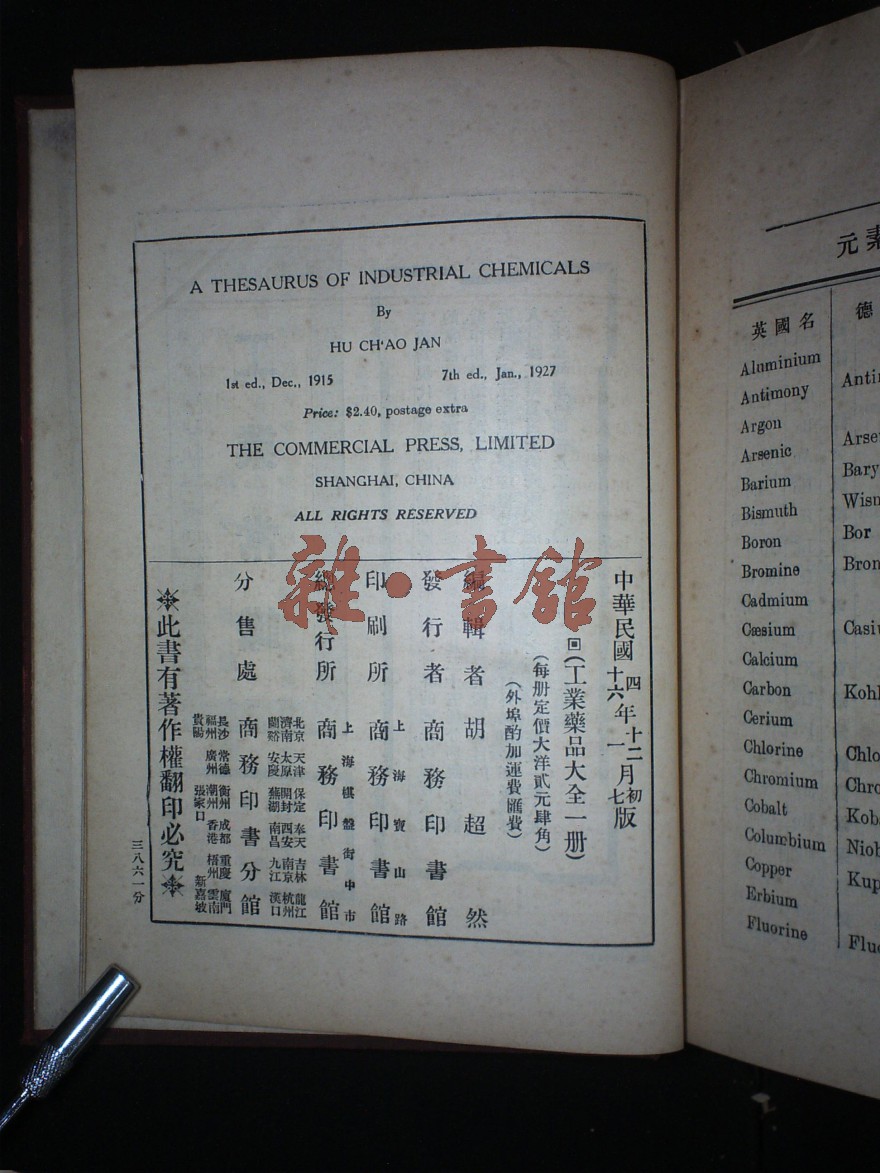 A THESAURUS OF INDUSTRIAL CHEMICALS
By
HU CH'AO JAN
1st ed., Dec., 1915 7th ed., Jan., 1927
Price: $2.40, postage extra
THE COMMERCIAL PRESS, LIMITED
SHANGHAI, CHINA
ALL RIGHTS RESERVED
中華民國四年十二月初版
十六年一月七版
(工業藥品大全一册)
(每册定價大洋貳元肆角)
(外埠酌加運費匯費)
編輯者 胡超然
發行者 商務印書館
印刷所 上海寶山路 商務印書館
總發行所 上海棋盤街中市 商務印書館
分售處 商務印書分館
北京 天津 保定 奉天 吉林 龍江
濟南 太原 開封 西安 南京 杭州
蘭谿 安慶 蕪湖 南昌 九江 漢口
長沙 常德 衡州 成都 重慶 廈門
福州 廣州 潮州 香港 梧州 雲南
貴陽 張家口 新嘉坡
此書有著作權翻印必究
三八六一分
雜·書館
元素
英國名 德
Aluminium
Antimony Anti
Argon
Arsenic Arse
Barium Bary
Bismuth Wism
Boron Bor
Bromine Bron
Cadmium
Cæsium Casiu
Calcium
Carbon Kohl
Cerium
Chlorine Chlo
Chromium Chro
Cobalt Kob
Columbium Niob
Copper Kup
Erbium
Fluorine Fluo